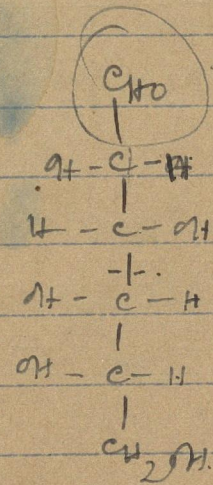 CHO
OH - C - H
H - C - OH
OH - C - H
OH - C - H
CH2OH